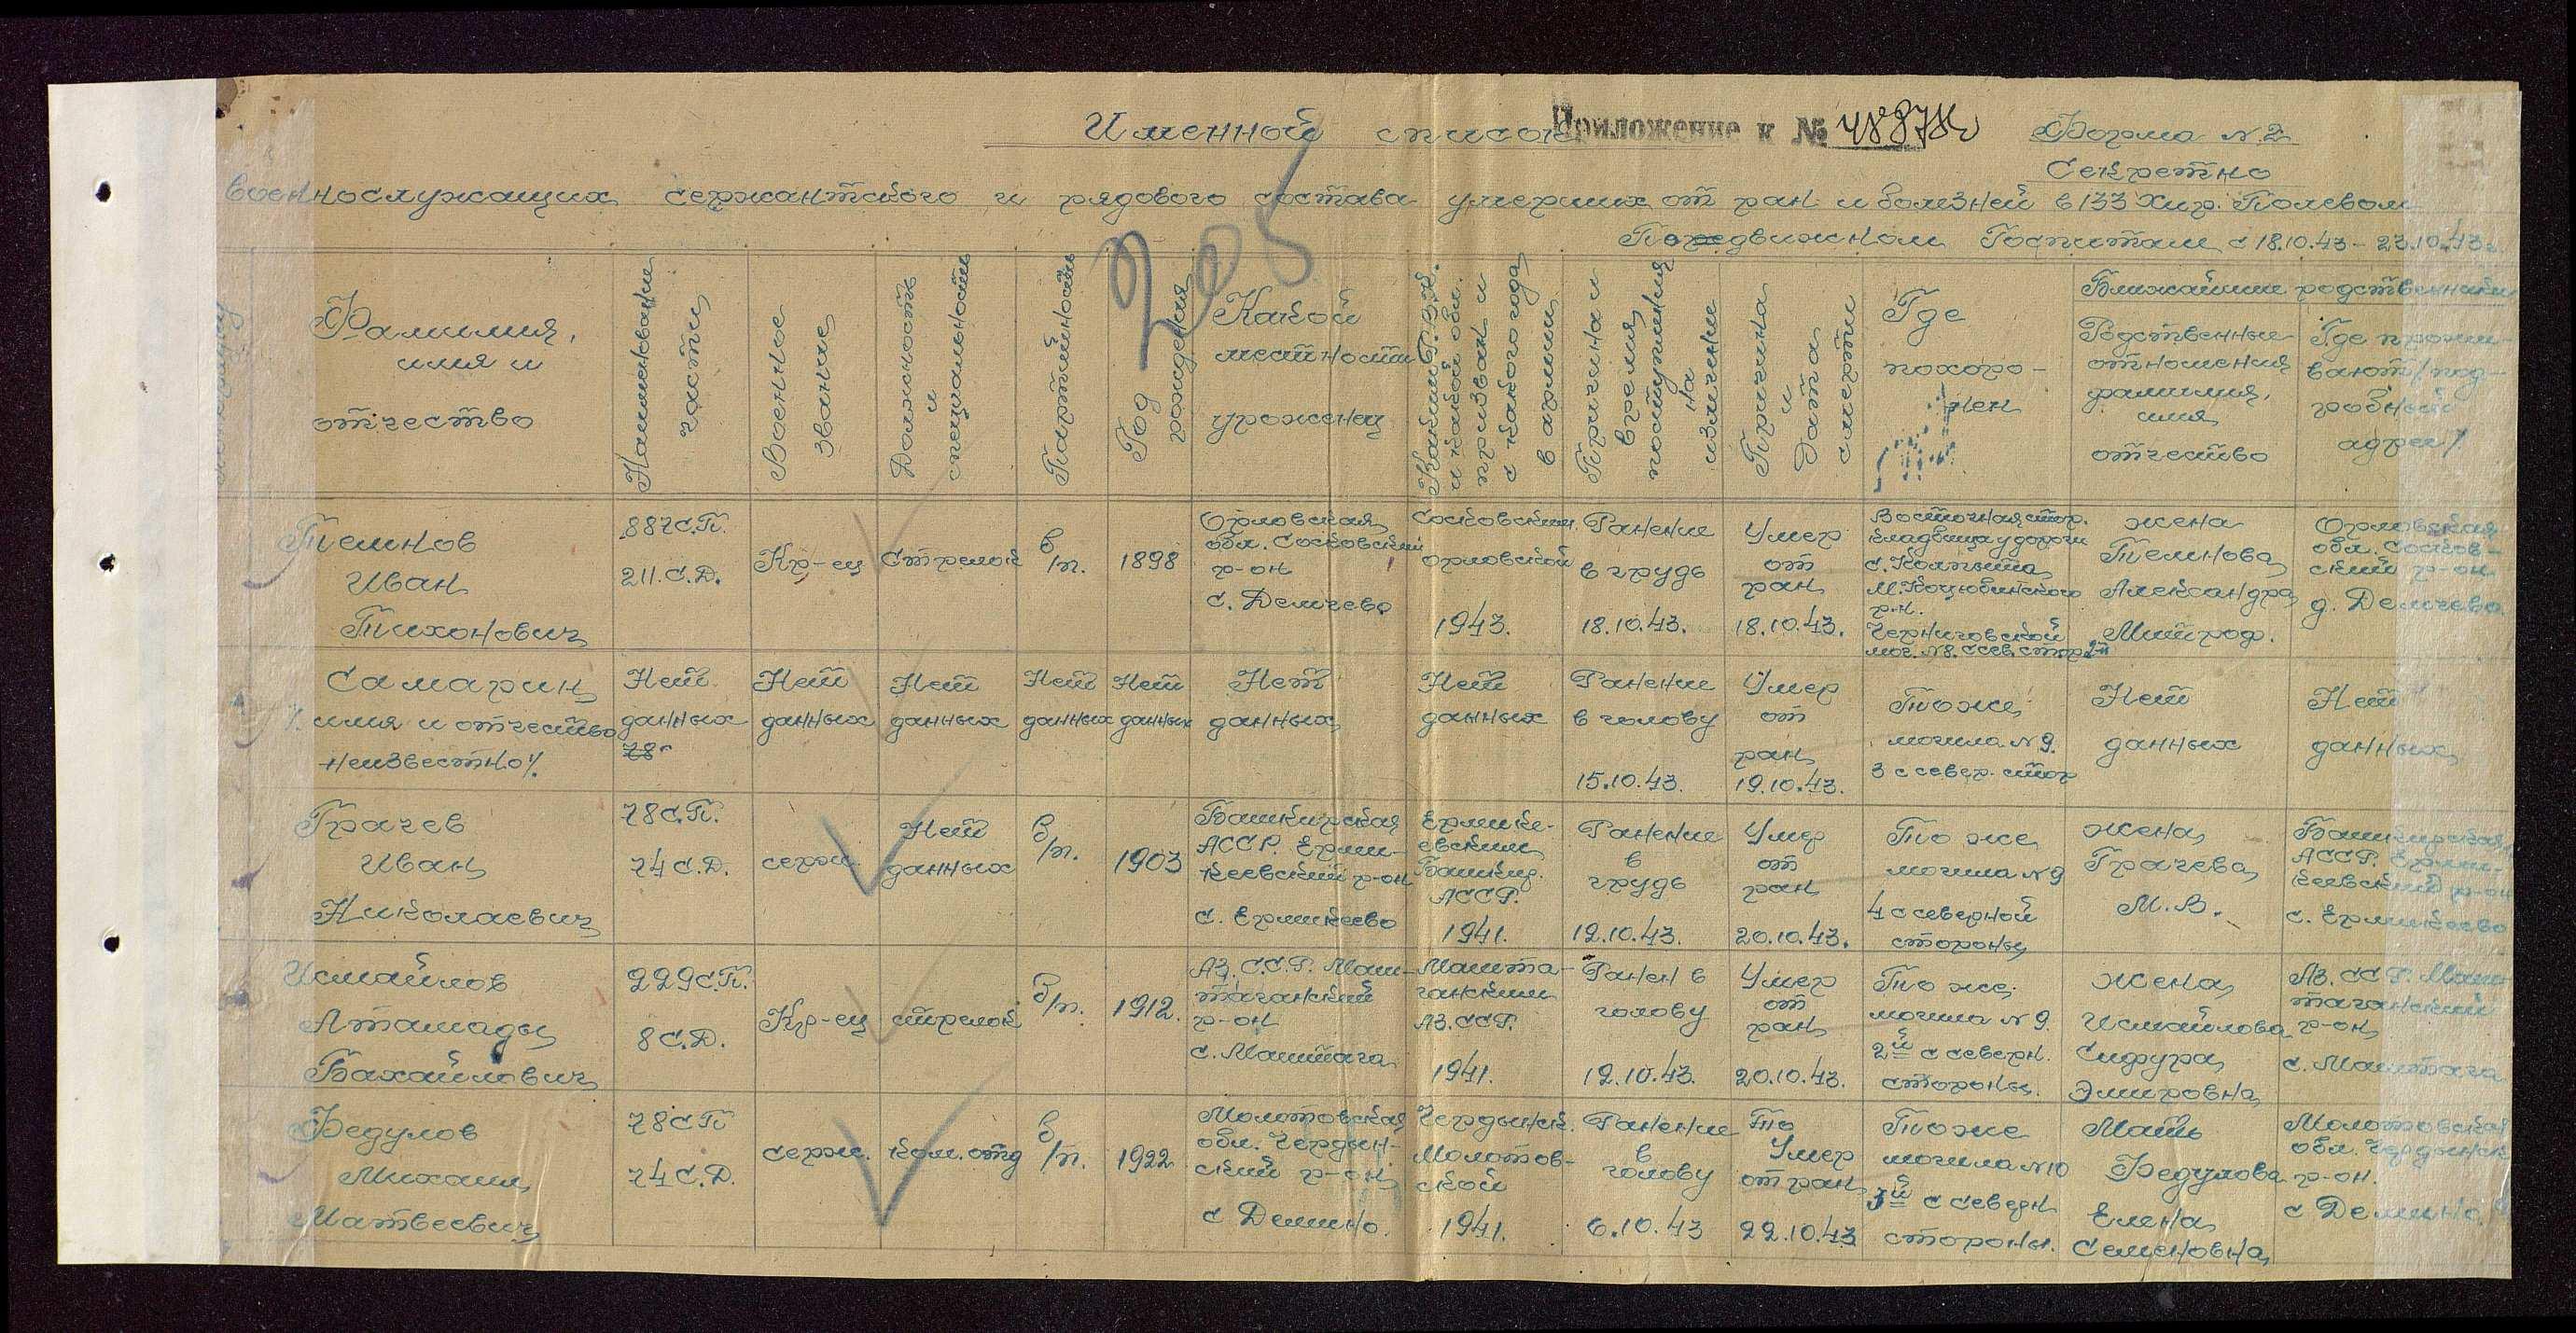 Именной список
Приложение к № 48878с
Форма № 2
Секретно
Военнослужащих сержантского и рядового состава умерших от ран и болезней в 133 Хир. Полевом
Передвижном Госпитале с 18.10.43 – 23.10.43 г.
205
Фамилия,
имя и
отчество
Наименование
части
Военное
звание
Должность
и
специальность
Партийность
Год
рождения
Какой
местности
уроженец
Каким Р.В.К.
и какой обл.
призван и
с какого года
в армии
Причина и
время
поступления
на
излечение
Причина
и
дата
смерти
Где
похоро-
нен
Ближайшие родственники
Родственные
отношения
фамилия,
имя
отчество
Где прожи-
вают/под-
робный
адрес/
Темнов
Иван
Тихонович
887 С.П.
211. С.Д.
Кр-ец
Стрелок
б/п.
1898
Орловская
обл. Сосковский
р-он
с. Демчево
Сосковским
орловской
1943.
Ранение
в грудь
18.10.43.
Умер
от
ран
18.10.43.
Восточная стор.
кладбища у дороги
М. Коцюбинского
р.н.
Черниговской
мог. № 8. с сев. стор. 2й
жена
Темнова
Александра
Митроф.
Орловская
обл. Сосков-
ский р-он
д. Демчево
Самарин
/. имя и отчество
неизвестно/.
Нет
данных
78
Нет
данных
Нет
данных
Нет
данных
Нет
данных
Нет
данных
Нет
данных
Ранение
в голову
15.10.43.
Умер
от
ран
19.10.43.
То же
могила № 9.
3 с север. стор
Нет
данных
Нет
данных
Грачев
Иван
Николаевич
78 С.П.
74 С.Д.
серж.
Нет
данных
б/п.
1903
Башкирская
АССР. Ерми-
кеевский р-он
с. Ермикеево
Ермике-
евским
Башкир.
АССР.
1941.
Ранение
в
грудь
19.10.43.
Умер
от
ран
20.10.43.
То же
могила № 9
4 с северной
стороны
жена
Грачева
М. В.
Башкирская
АССР. Ерми-
кеевский р-он
с. Ермикеево
Исмайлов
Аташады
Бахайлович
229 С.П.
8 С.Д.
Кр-ец
стрелок
б/п.
1912.
Аз. С.С.Р. Маш-
таганский
р-он
с. Маштага
Машта-
ганским
Аз. ССР.
1941.
Ранен в
голову
19.10.43.
Умер
от
ран
20.10.43.
То же
могила № 9.
2й с северн.
стороны.
жена
Исмайлова
Сифура
Эмировна
Аз. ССР. Маш
таганский
р-он
с. Маштага
Федулов
Михаил
Матвеевич
78 С П
74 С.Д.
серж.
Ком. отд
б/п.
1922
Молотовская
обл. Чердын-
ский р-он
с Демино.
Чердынск.
Молотов-
ской
1941.
Ранение
в
голову
6.10.43
То
Умер
от ран
22.10.43
То же
могила № 10
3й с северн
стороны.
Мать
Федулова
Елена
Семеновна
Молотовская
обл. Чердынск
р-он.
с Демино.